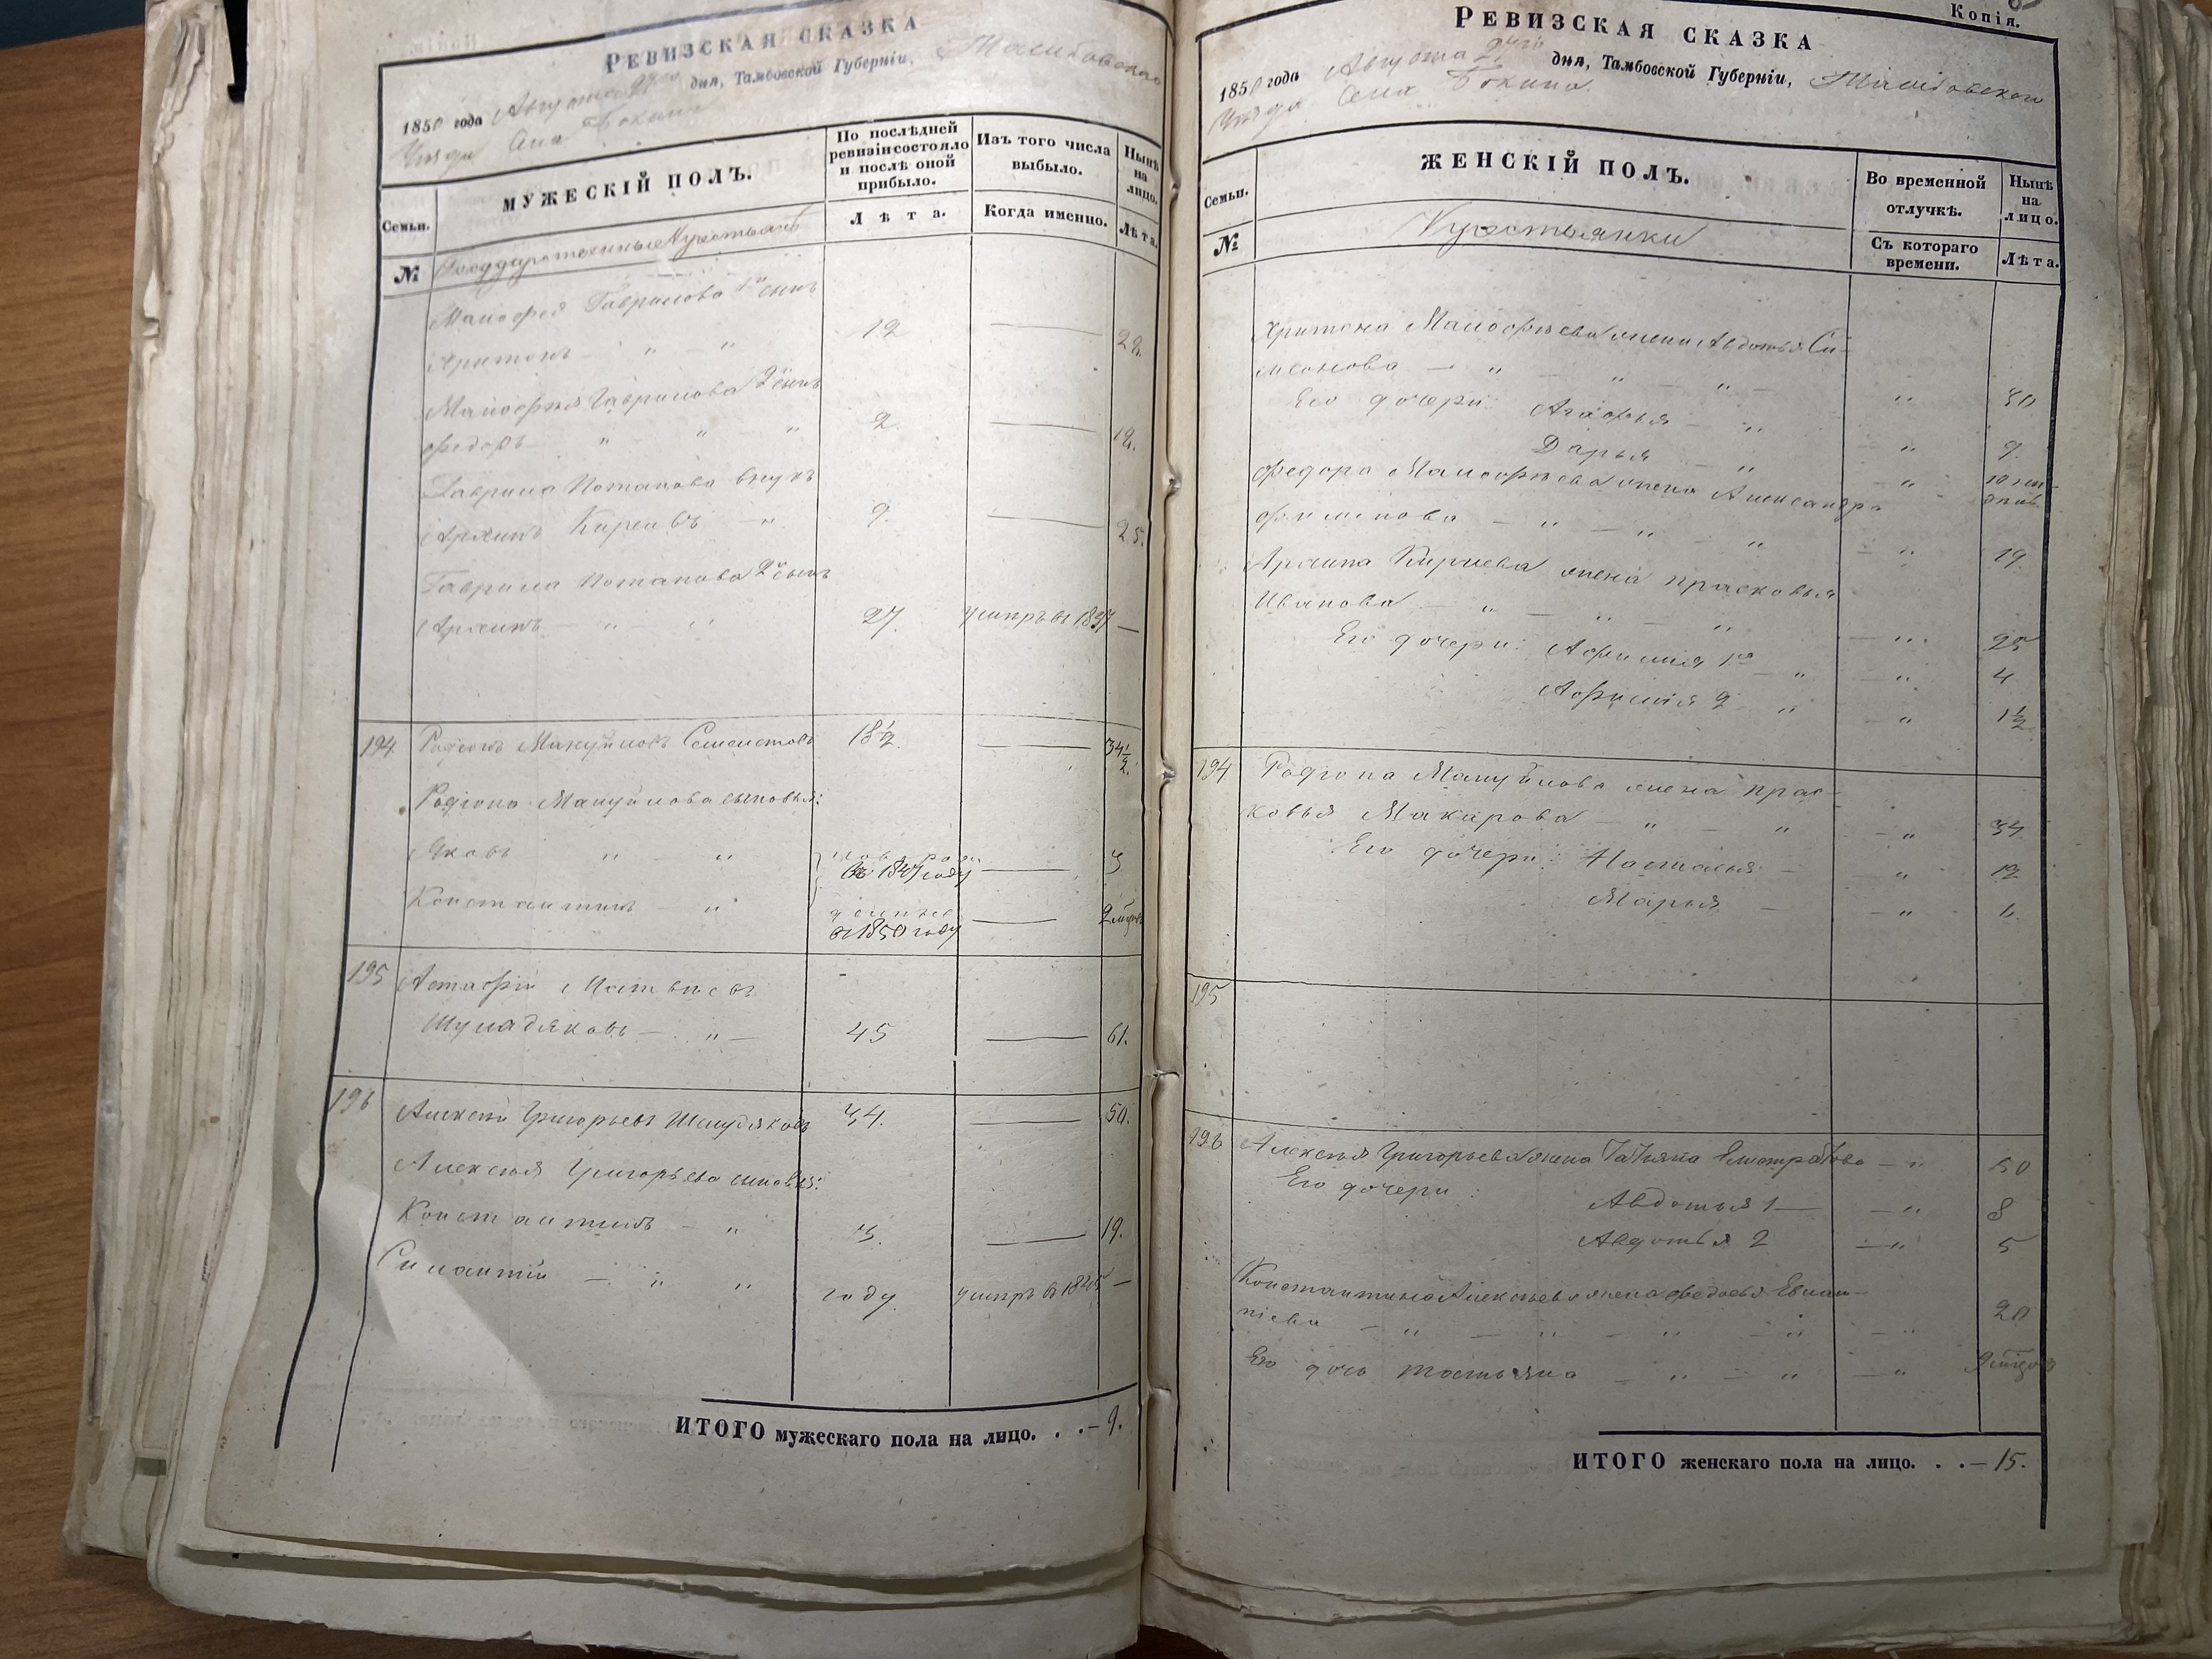 РЕВИЗСКАЯ СКАЗКА
1850 года Августа 24го дня, Тамбовской Губерніи, Тамбовскаго
Уѣзда Села Бокина
Семьи. МУЖЕСКІЙ ПОЛЪ. По послѣдней ревизіи состояло и послѣ оной прибыло. Изъ того числа выбыло. Нынѣ на лицо.
№ Государственныхъ Крестьянъ Лѣта. Когда именно. Лѣта.
Гаврилова 1й сынъ
Харитонъ " " 12 — 28.
Гаврилова 2й сынъ
Федоръ " " " 2 — 18.
Гаврила Потапова внукъ
Архипъ " 9. — 25.
Гаврила Потапова 2й сынъ
Архипъ — " — " 27. умеръ въ 1837 —
194 Родіонъ Мануйловъ 18½ — 34½.
Родіона Мануйлова сыновья:
Яковъ " " въ 1847 году — 3
Константинъ — " въ 1850 году —
195 Астафій Матвѣевъ
Шулдяковъ — " — 45 — 61.
196 Алексѣй Григорьевъ Шулдяковъ 34. — 50.
Алексѣя Григорьева сыновья:
Константинъ — " 3. — 19.
— " " году умеръ въ —
ИТОГО мужескаго пола на лицо. . . — 9.
Копія.
РЕВИЗСКАЯ СКАЗКА
1850 года Августа 24го дня, Тамбовской Губерніи, Тамбовскаго
Уѣзда Села Бокина.
Семьи. ЖЕНСКІЙ ПОЛЪ. Во временной отлучкѣ. Нынѣ на лицо.
№ Крестьянки Съ котораго времени. Лѣта.
Харитона жена Авдотья Си-
меонова — " — " — " — " 30
Его дочери: Агафья — " — " 9.
Дарья — " — "
Федора жена Александра
— " — " — " — " 19.
Архипа жена Прасковья
Иванова — " — " — " — " 25
Его дочери: 1я — " — " 4
2 " — " 1½
194 Родіона Мануйлова жена Прас-
ковья Макарова — " — " — " 34
Его дочери: Наталья — — " 12
Марья — — " 6.
195
196 Алексѣя Григорьева жена Татьяна Елистратова — " 50
Его дочери: Авдотья 1 — — " 8
Авдотья 2 — " 5
Константина Алексѣева жена Федосья
— " — " — " — " — " 20
Его дочь — " — " — "
ИТОГО женскаго пола на лицо. . . — 15.